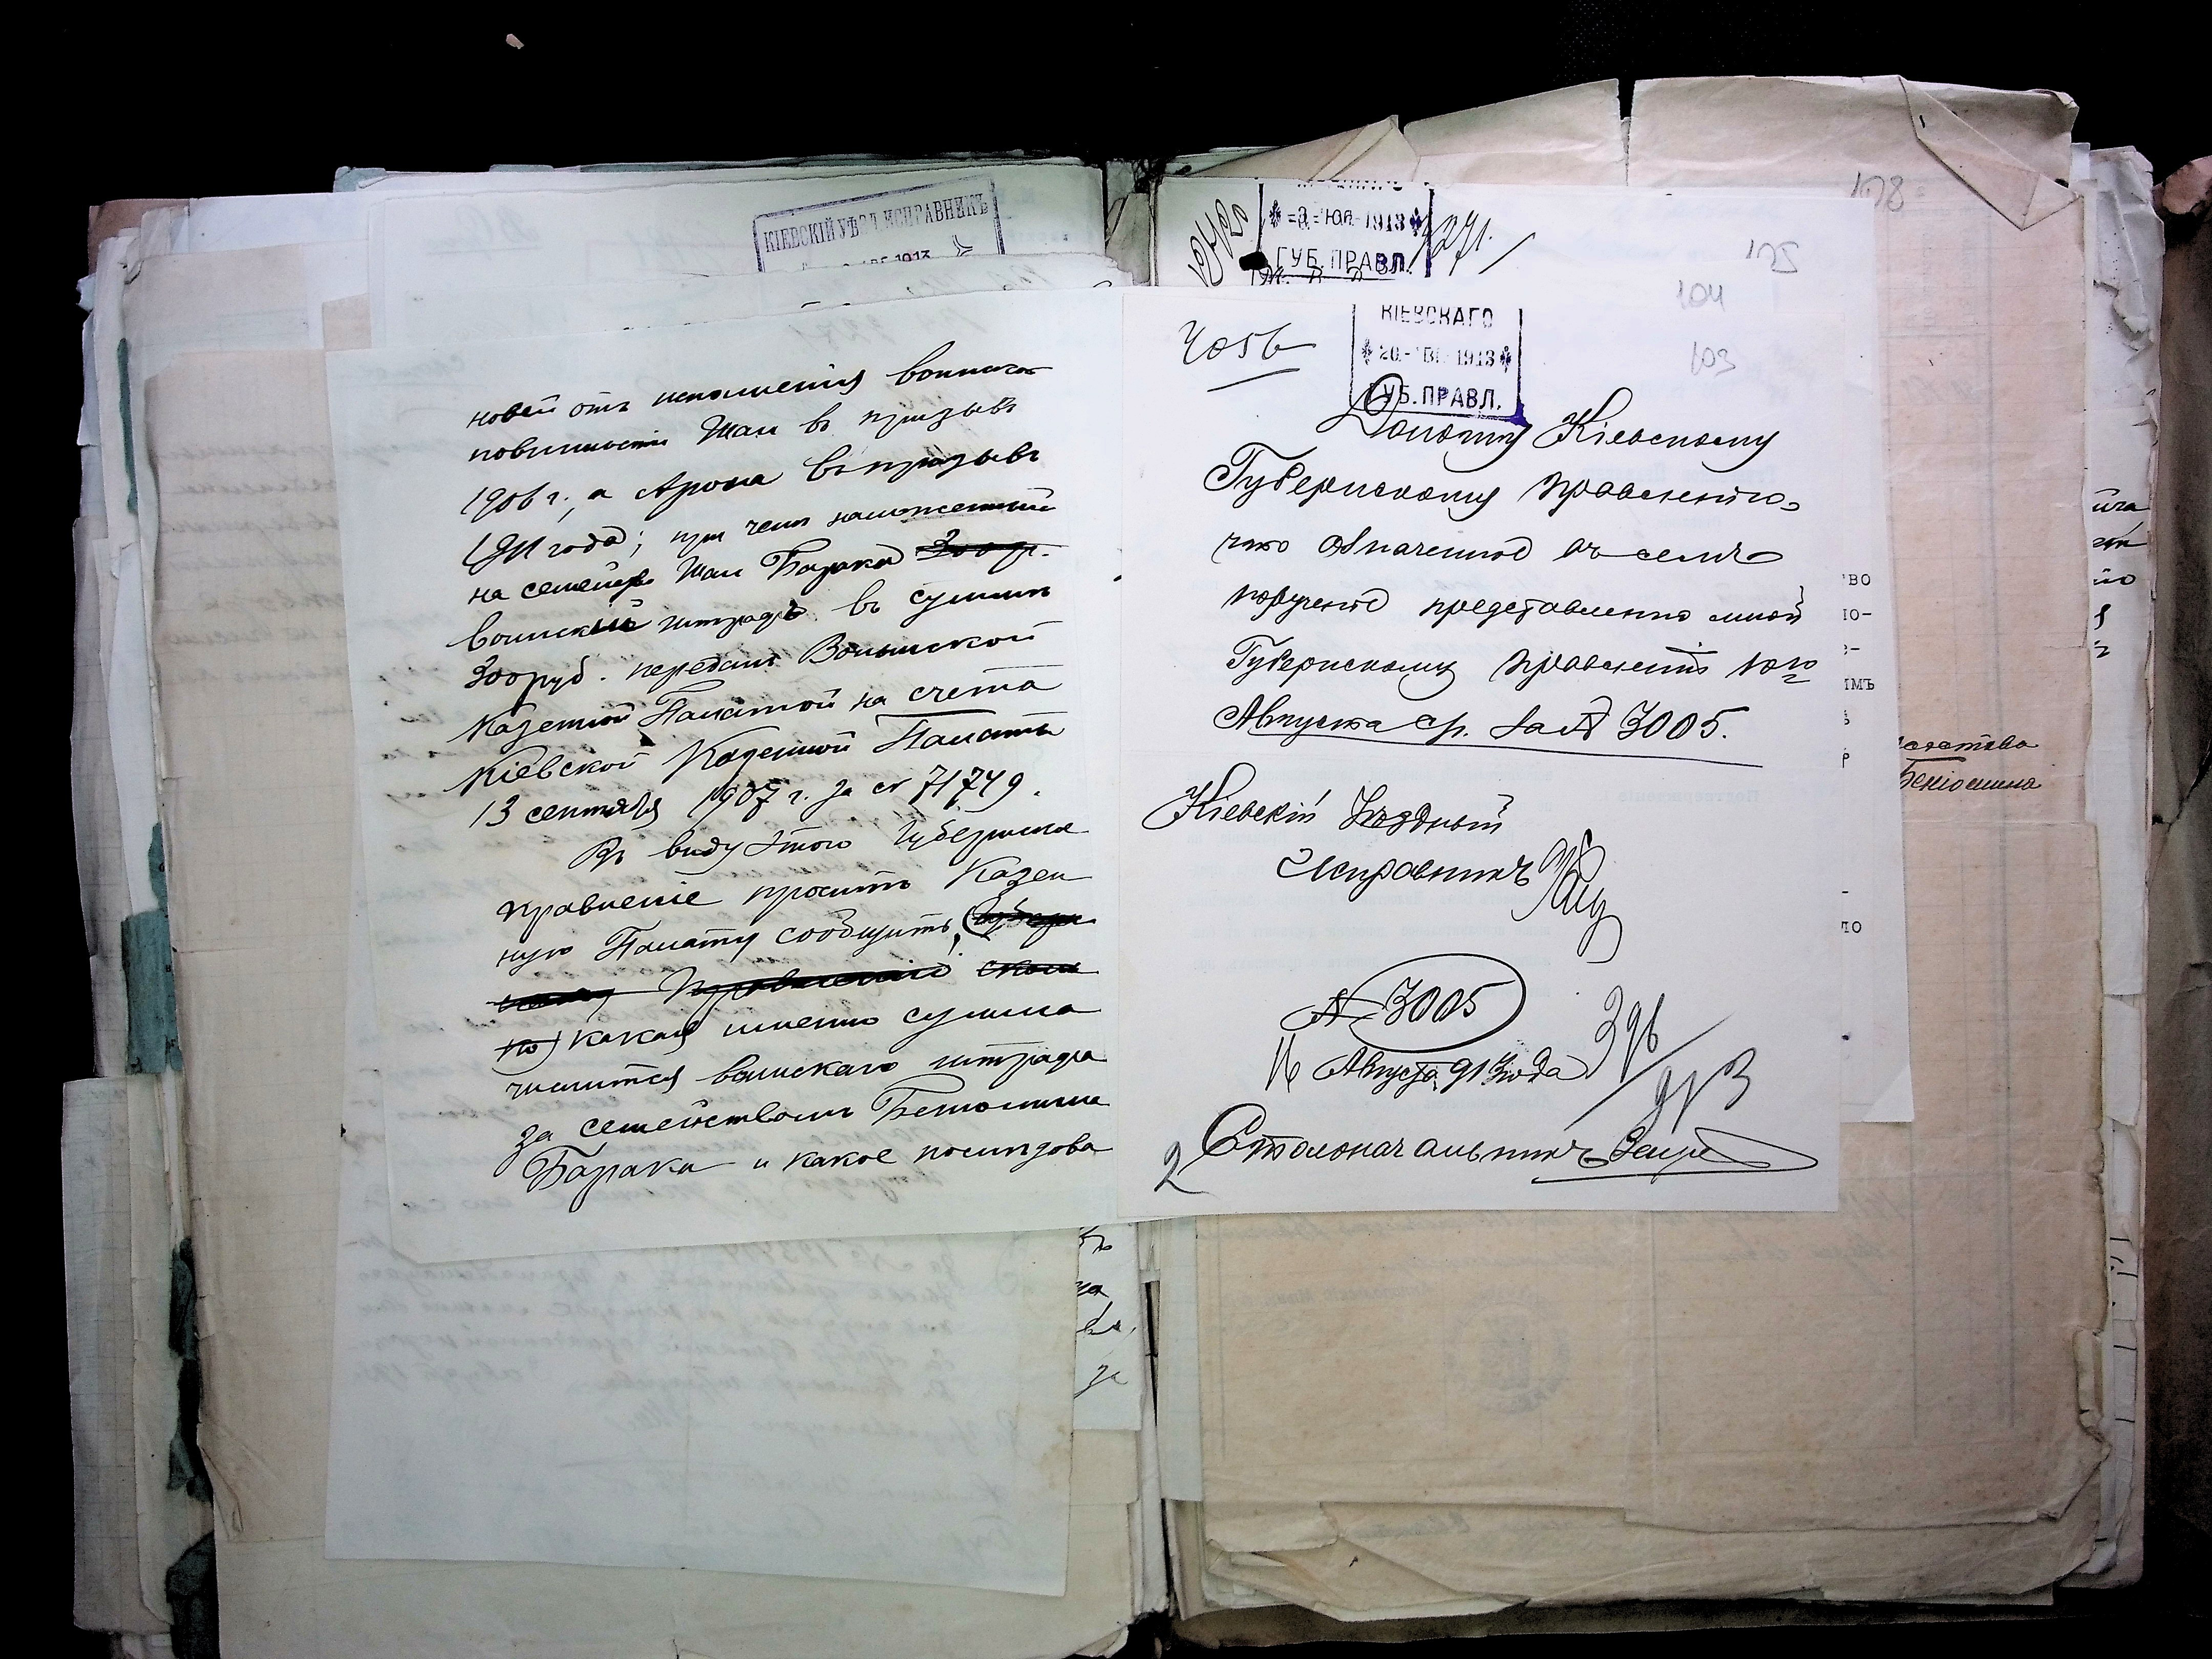 КІЕВСКІЙ УѢЗД. ИСПРАВНИКЪ
1913
новей отъ исполненія воинской
повинности Шаи въ призывъ
1906 г., а Арона въ призывъ
1911 года; при чемъ наложенный
на семейство Шаи Барака 300 р.
воинскій штрафъ въ суммѣ
300 руб. переданъ Волынской
Казенной Палатой на счета
Кіевской Казенной Палаты
13 сентября 1907 г. за № 71749.
Въ виду этого Губернское
правленіе проситъ Казен
ную Палату сообщить, Губерн
скому Правленію сколь
ко) какая именно сумма
числится воинскаго штрафа
за семействомъ Бениомина
Барака и какое послѣдова
1913
ГУБ. ПРАВЛ.
271.
178
175
104
103
4056
КІЕВСКАГО
20 АВГ. 1913
ГУБ. ПРАВЛ.
Доношу Кіевскому
Губернскому Правленію,
что означенное въ семъ
порученіе представлено мной
Губернскому Правленію 16го
Августа с/г. за № 3005.
Кіевскій Уѣздный
Исправникъ
№ 3005
16 Августа 913 года
396
913
2 Столоначальникъ